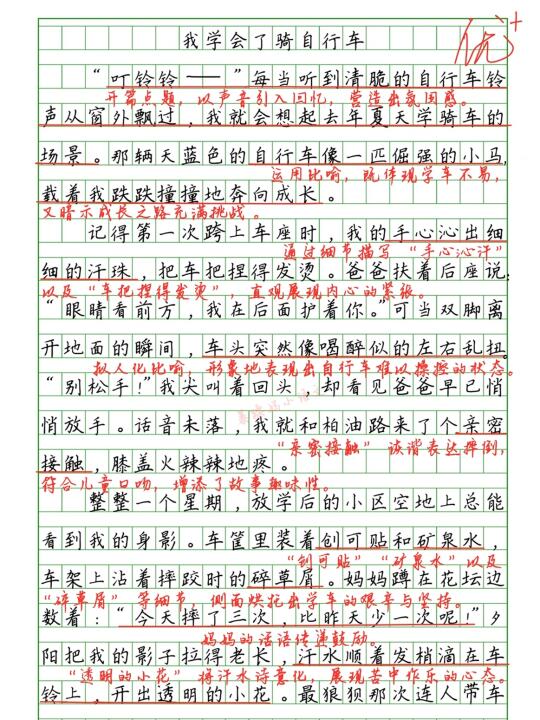 优+
我学会了骑自行车
“叮铃铃——”每当听到清脆的自行车铃
开篇点题，以声音引入回忆，营造出氛围感。
声从窗外飘过，我就会想起去年夏天学骑车的
场景。那辆天蓝色的自行车像一匹倔强的小马，
运用比喻，既体现学车不易，
载着我跌跌撞撞地奔向成长。
又暗示成长之路充满挑战。
记得第一次跨上车座时，我的手心沁出细
通过细节描写“手心沁汗”
细的汗珠，把车把捏得发烫。爸爸扶着后座说：
以及“车把捏得发烫”，直观展现内心的紧张。
“眼睛看前方，我在后面护着你。”可当双脚离
开地面的瞬间，车头突然像喝醉似的左右乱扭。
拟人化比喻，形象地表现出自行车难以操控的状态。
“别松手！”我尖叫着回头，却看见爸爸早已悄
悄放手。话音未落，我就和柏油路来了个亲密
“亲密接触”诙谐表达摔倒，
接触，膝盖火辣辣地疼。
符合儿童口吻，增添了故事趣味性。
整整一个星期，放学后的小区空地上总能
看到我的身影。车筐里装着创可贴和矿泉水，
“创可贴”“矿泉水”以及
车架上沾着摔跤时的碎草屑。妈妈蹲在花坛边
“碎草屑”等细节，侧面烘托出学车的艰辛与坚持。
数着：“今天摔了三次，比昨天少一次呢！”夕
妈妈的话语传递鼓励。
阳把我的影子拉得老长，汗水顺着发梢滴在车
“透明的小花”将汗水诗意化，展现苦中作乐的心态。
铃上，开出透明的小花。最狼狈那次连人带车